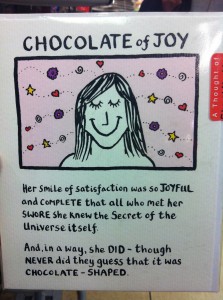 CHOCOLATE of JOY
A Thought of
Her smile of satisfaction was so JOYFUL
and COMPLETE that all who met her
SWORE she knew the Secret of the
Universe itself.
And, in a way, she DID - though
NEVER did they guess that it was
CHOCOLATE - SHAPED.